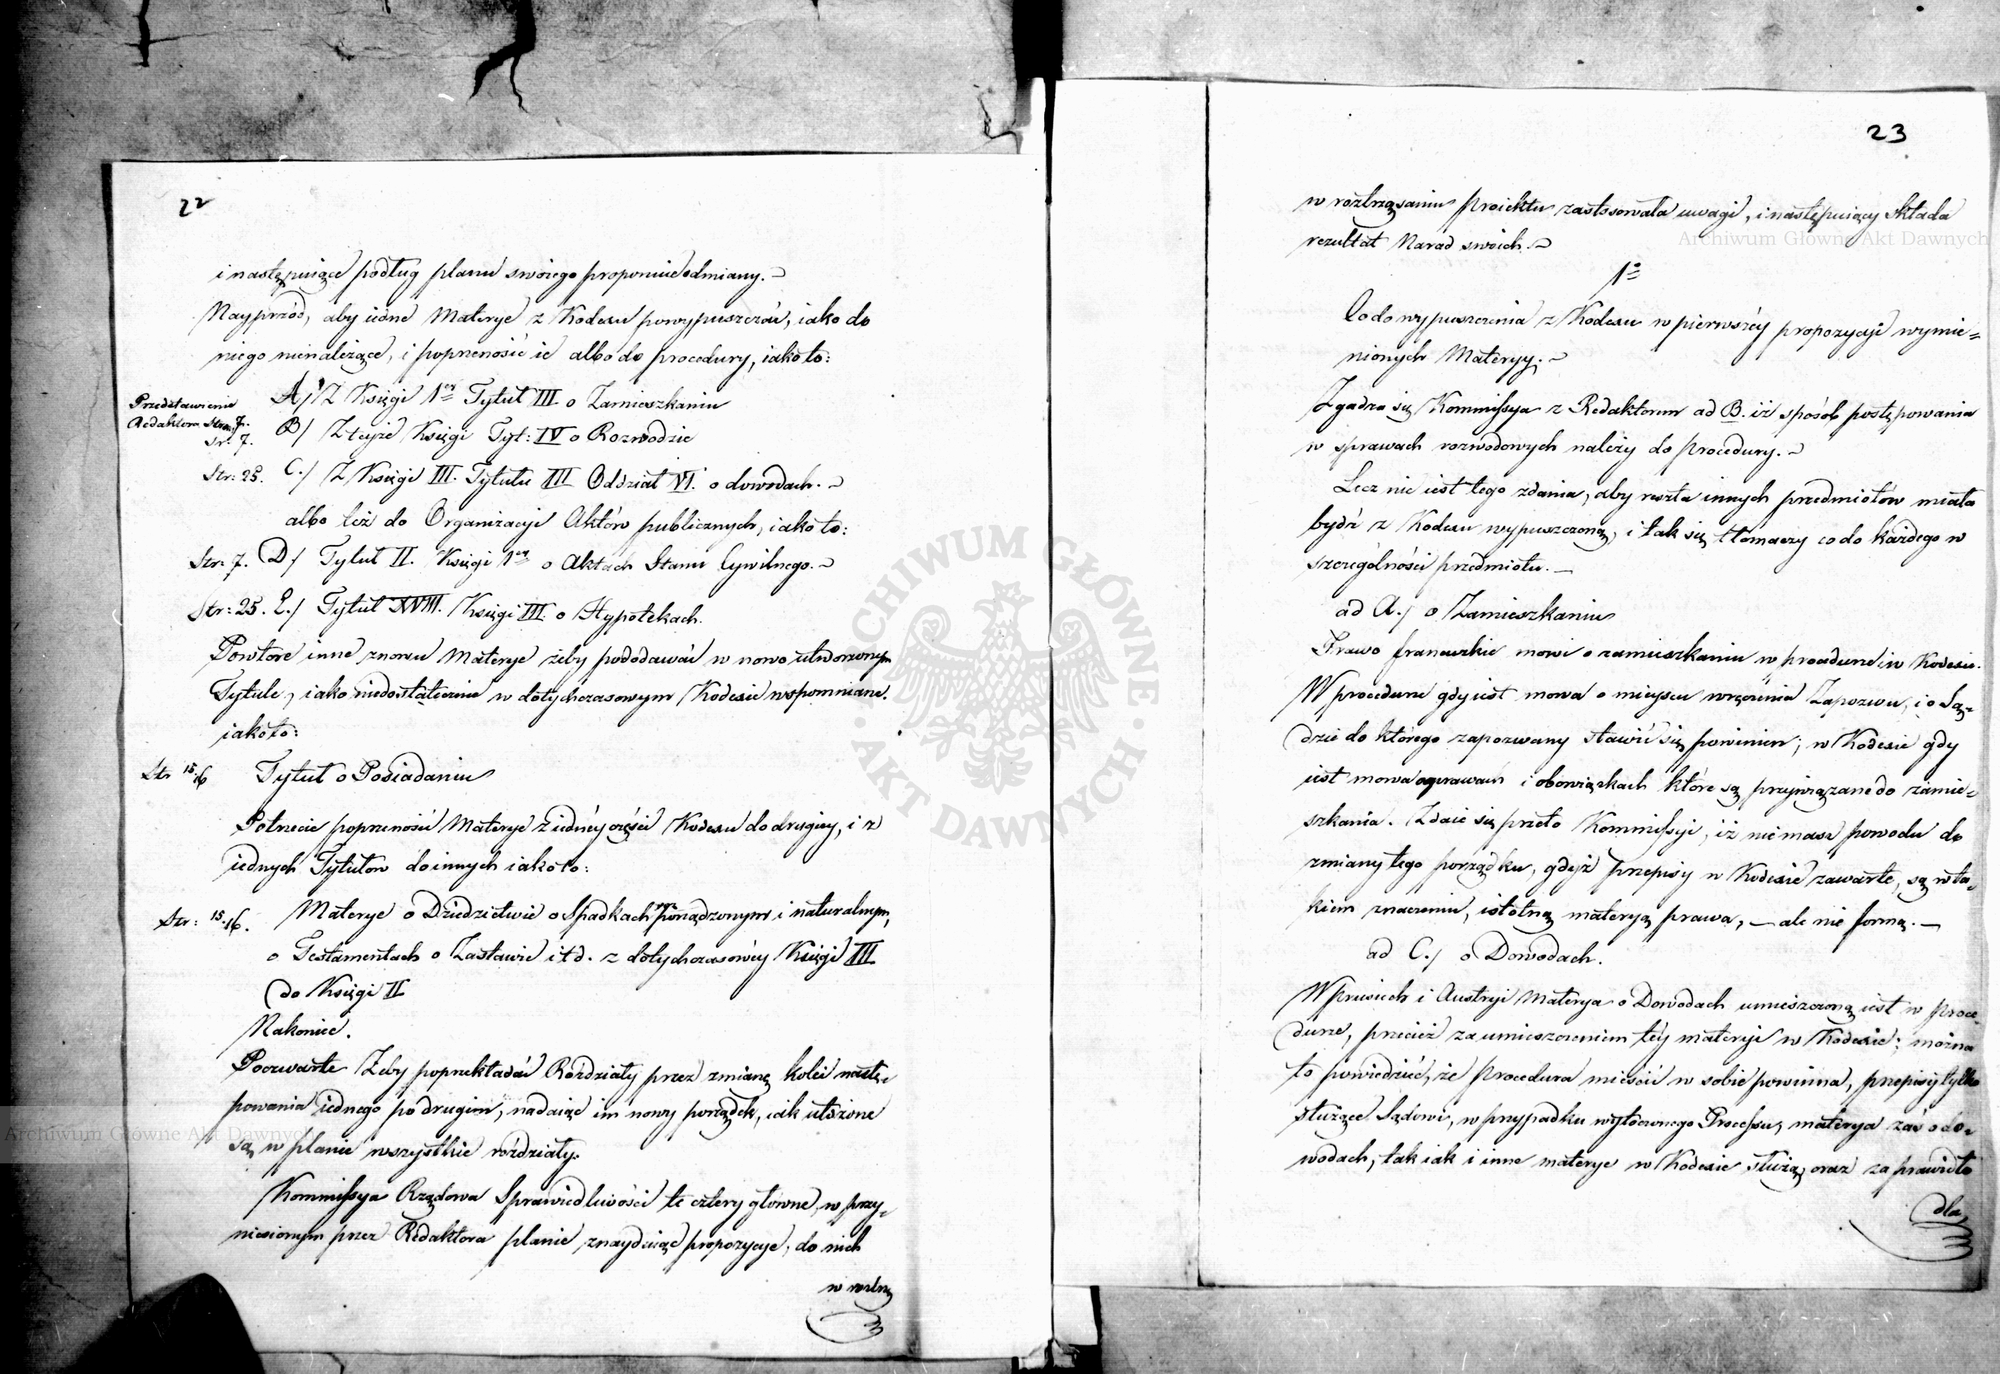 22
i następuiące podług planu swoiego proponuie odmiany. ~
Nayprzód, aby iedne Materye z Kodexu powypuszczać, iako do
niego nienależące, i poprzenosić ie albo do procedury, iako to:
Przedstawienie
Redaktora Stro: 7.
A./ Z Księgi 1ey Tytuł III o Zamieszkaniu
Str: 7. B/ Z teyże Księgi Tyt: IV o Rozwodzie
Str: 25. C./ Z Księgi III. Tytułu III Oddział VI. o dowodach. ~
albo też do Organizacyi Aktów publicznych, iako to:
Str: 7. D/ Tytuł II. Księgi 1ey o Aktach Stanu Cywilnego. ~
Str: 25. E./ Tytuł XVIII. Księgi III. o Hypotekach.
Powtore inne znowu Materye żeby pododawać w nowo utworzonym
Tytule, iako niedostatecznie w dotychczasowym Kodexie wspomniane.
iako to:
Str 15.16 Tytuł o Posiadaniu
Potrzecie poprzenosić Materye z iednéy części Kodexu do drugiey, i z
iednych Tytułów do innych iako to:
Str: 15.16. Materye o Dziedzictwie o Spadkach porządzonym i naturalnym,
o Testamentach o Zastawie itd. z dotychczasowéy Księgi III
do Księgi II
Nakoniec.
Poczwarte Żeby poprzekładać Rozdziały przez zmianę kolei nastę-
powania iednego po drugim, nadaiąc im nowy porządek, iak ułożone
są w planie wszystkie rozdziały.
Kommissya Rządowa Sprawiedliwości te cztery główne, w przy-
niesionym przez Redaktora planie znayduiąc propozycye, do nich
w roztrzą
23
w roztrząsaniu proiektu zastosowała uwagi, i następuiący składa
rezultat Narad swoich. ~
1o
Co do wypuszczenia z Kodexu w pierwszéy propozycyi wymie-
nionych Materyy. ~
Zgadza się Kommissya z Redaktorem ad B. iż sposób postępowania
w sprawach rozwodowych należy do procedury. ~
Lecz nie iest tego zdania, aby reszta innych przedmiotów miała
bydź z Kodexu wypuszczoną, i tak się tłomaczy co do każdego w
szczególności przedmiotu. —
ad A./ o Zamieszkaniu
Prawo francuzkie mowi o zamieszkaniu w procedurze i w Kodexie.
W procedurze gdy iest mowa o mieyscu wręczenia Zapozwu, i o Są-
dzie do którego zapozwany stawić się powinien; w Kodexie gdy
iest mowa o prawach i obowiązkach które są przywiązane do zamie-
szkania. Zdaie się przeto Kommissyi, iż nie masz powodu do
zmiany tego porządku, gdyż przepisy w Kodexie zawarte, są w ta-
kiem znaczeniu, istotną materyą prawa, — ale nie formą. —
ad C./ o Dowodach.
W Prusiech i Austryi Materya o Dowodach umieszczoną iest w proce-
durze, przecież za umieszczeniem téy materyi w Kodexie; można
to powiedzieć, że procedura mieścić w sobie powinna, przepisy tylko
służące Sądowi, w przypadku wytoczonego Processu, materya zaś o do-
wodach, tak iak i inne materye w Kodexie służą, oraz za prawidło
dla
Archiwum Główne Akt Dawnych
Archiwum Główne Akt Dawnych
ARCHIWUM GŁÓWNE
AKT DAWNYCH